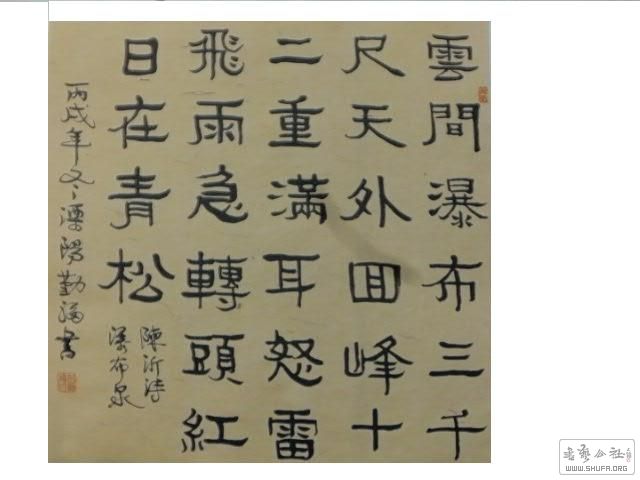 雲間瀑布三千
尺天外回峰十
二重滿耳怒雷
飛雨急轉頭紅
日在青松
陳沂詩
瀑布泉
丙戌年冬溧陽勤福書
書藝公社
WWW.SHUFA.ORG